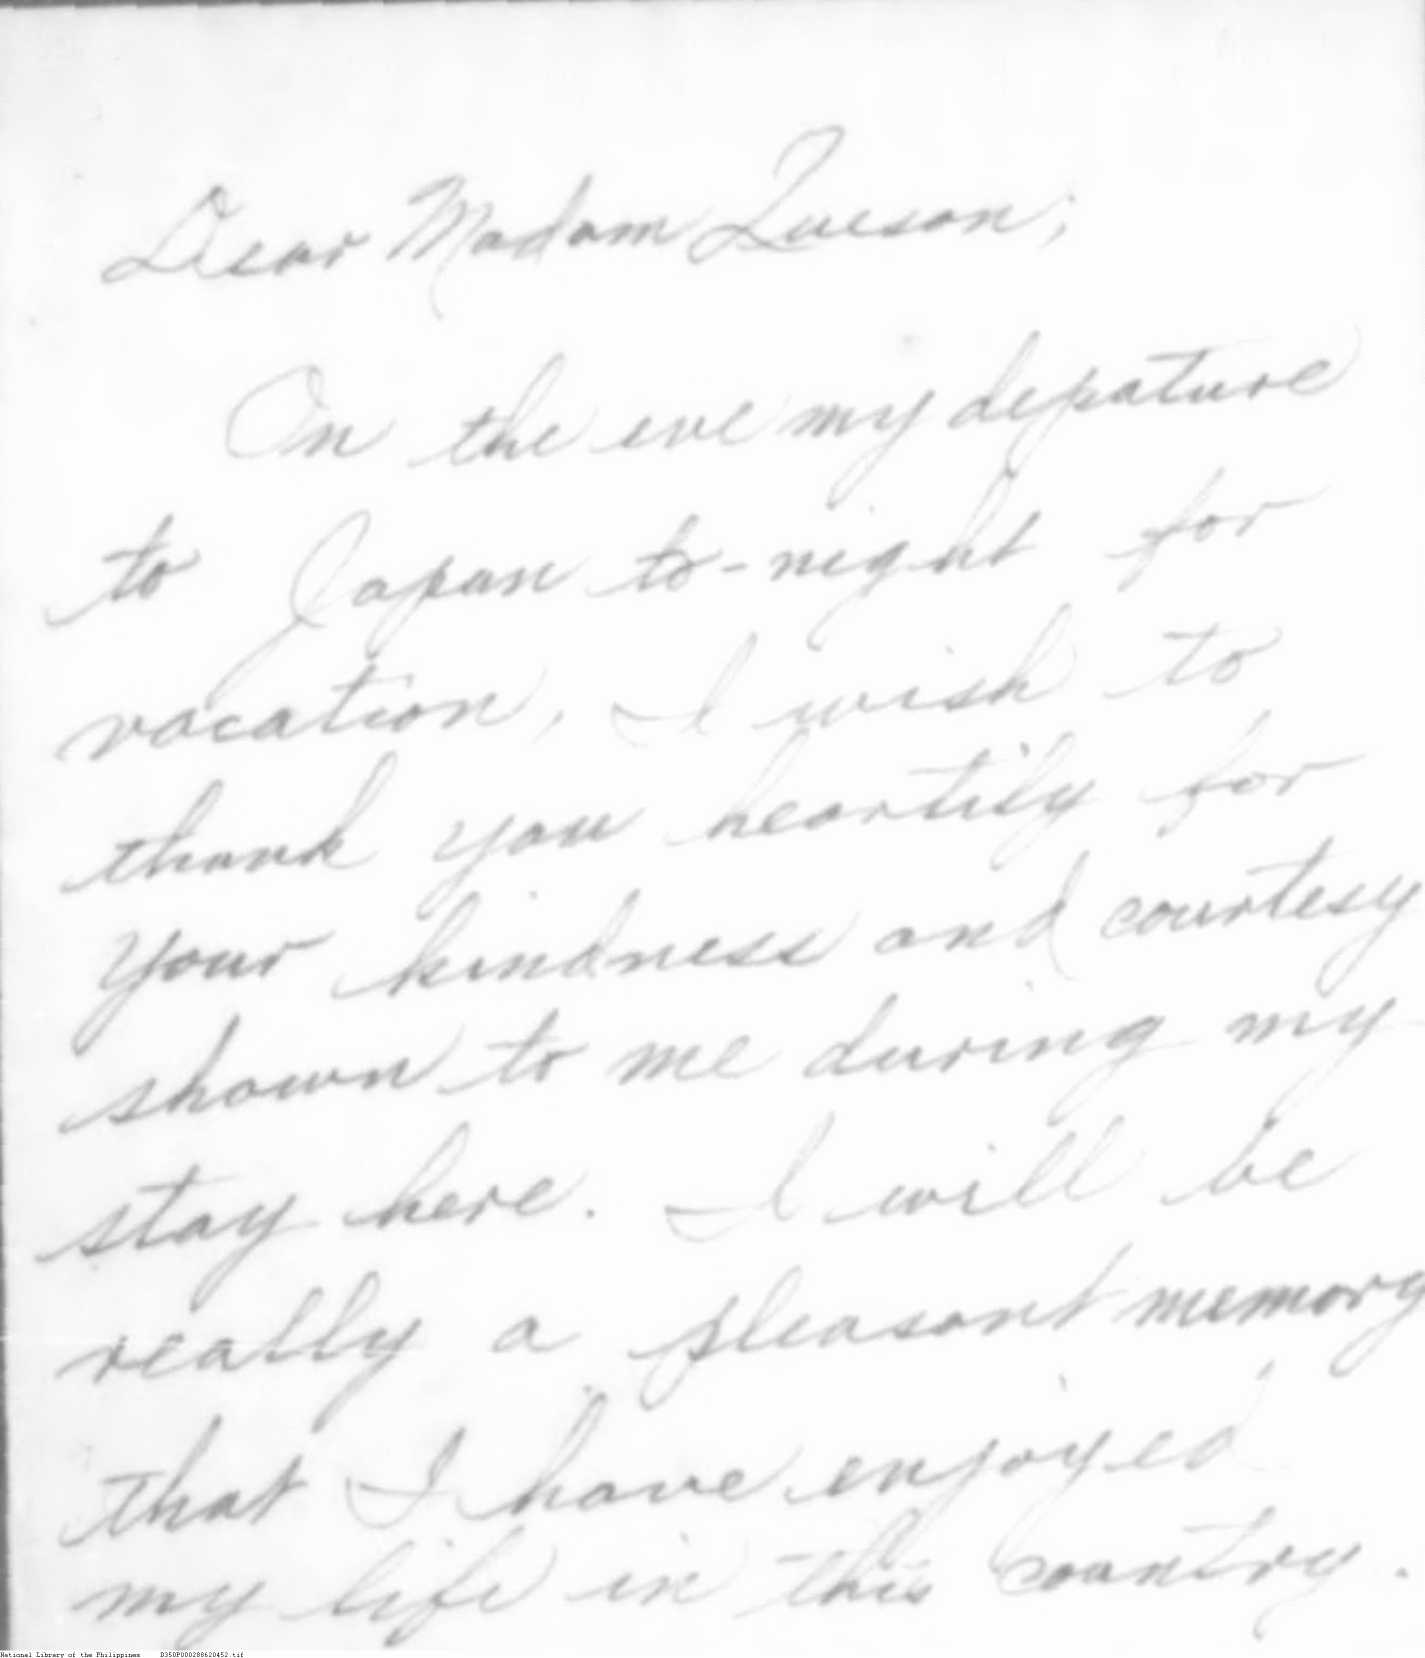 Dear Madam Queson;
On the eve my depature
to Japan to-night for
vacation, I wish to
thank you heartily for
your kindness and courtesy
shown to me during my
stay here. I will be
really a pleasant memory
that I have enjoyed
my life in this country.
National Library of the Philippines D350P000288620452.tif